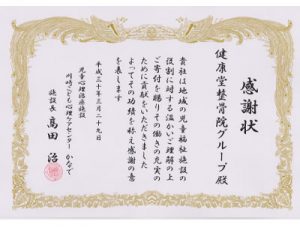 感謝状
健康堂整骨院グループ殿
貴社は地域の児童福祉施設の
役割に対する温かいご理解の上
ご寄付を賜りその働きの充実の
ために貢献をいただきました
よってその功績を称え感謝の意
を表します
平成三十年三月二十九日
児童心理治療施設
川崎こども心理ケアセンターかなで
施設長 高田 治